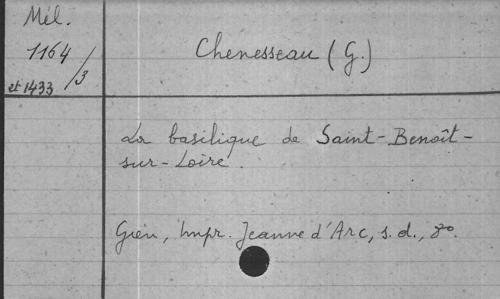 Mél.
1164/3
et 1433
Chenesseau (G.)
La basilique de Saint-Benoît-
sur-Loire.
Gien, Impr. Jeanne d'Arc, s.d., 8º.